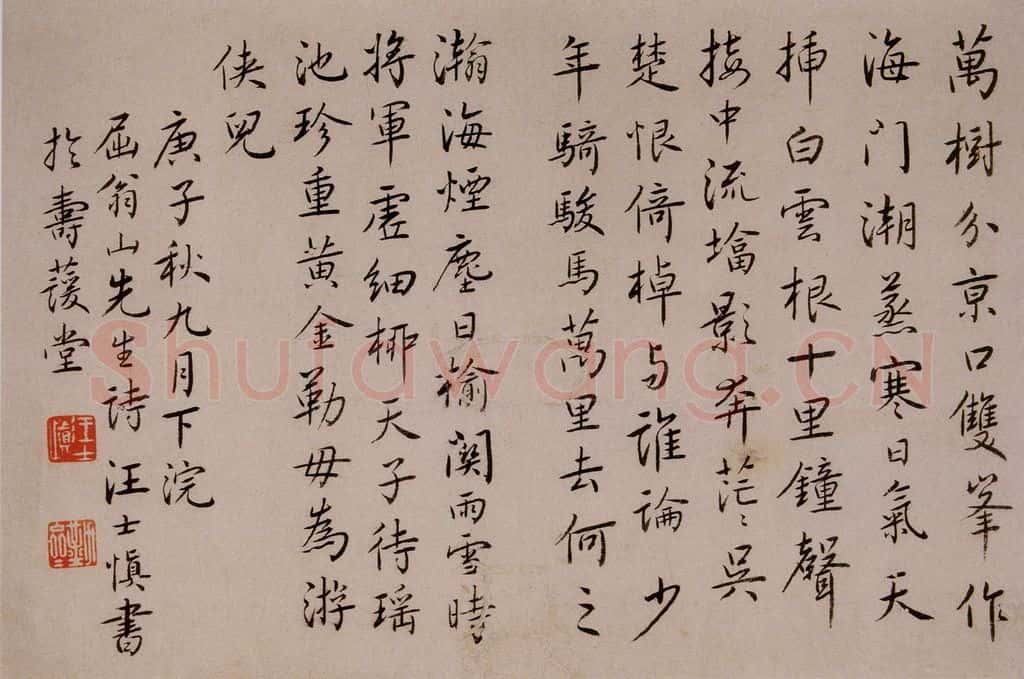 萬樹分京口雙峯作
海门潮蒸寒日氣天
揷白雲根十里鐘聲
接中流墖影奔茫〻吴
楚恨倚棹与誰論少
年騎駿馬萬里去何之
瀚海煙塵日榆関雨雪時
將軍虗細柳天子待瑶
池珍重黄金勒毋為游
侠兒
庚子秋九月下浣
屈翁山先生詩汪士慎書
扵壽薐堂
Shufawang.CN